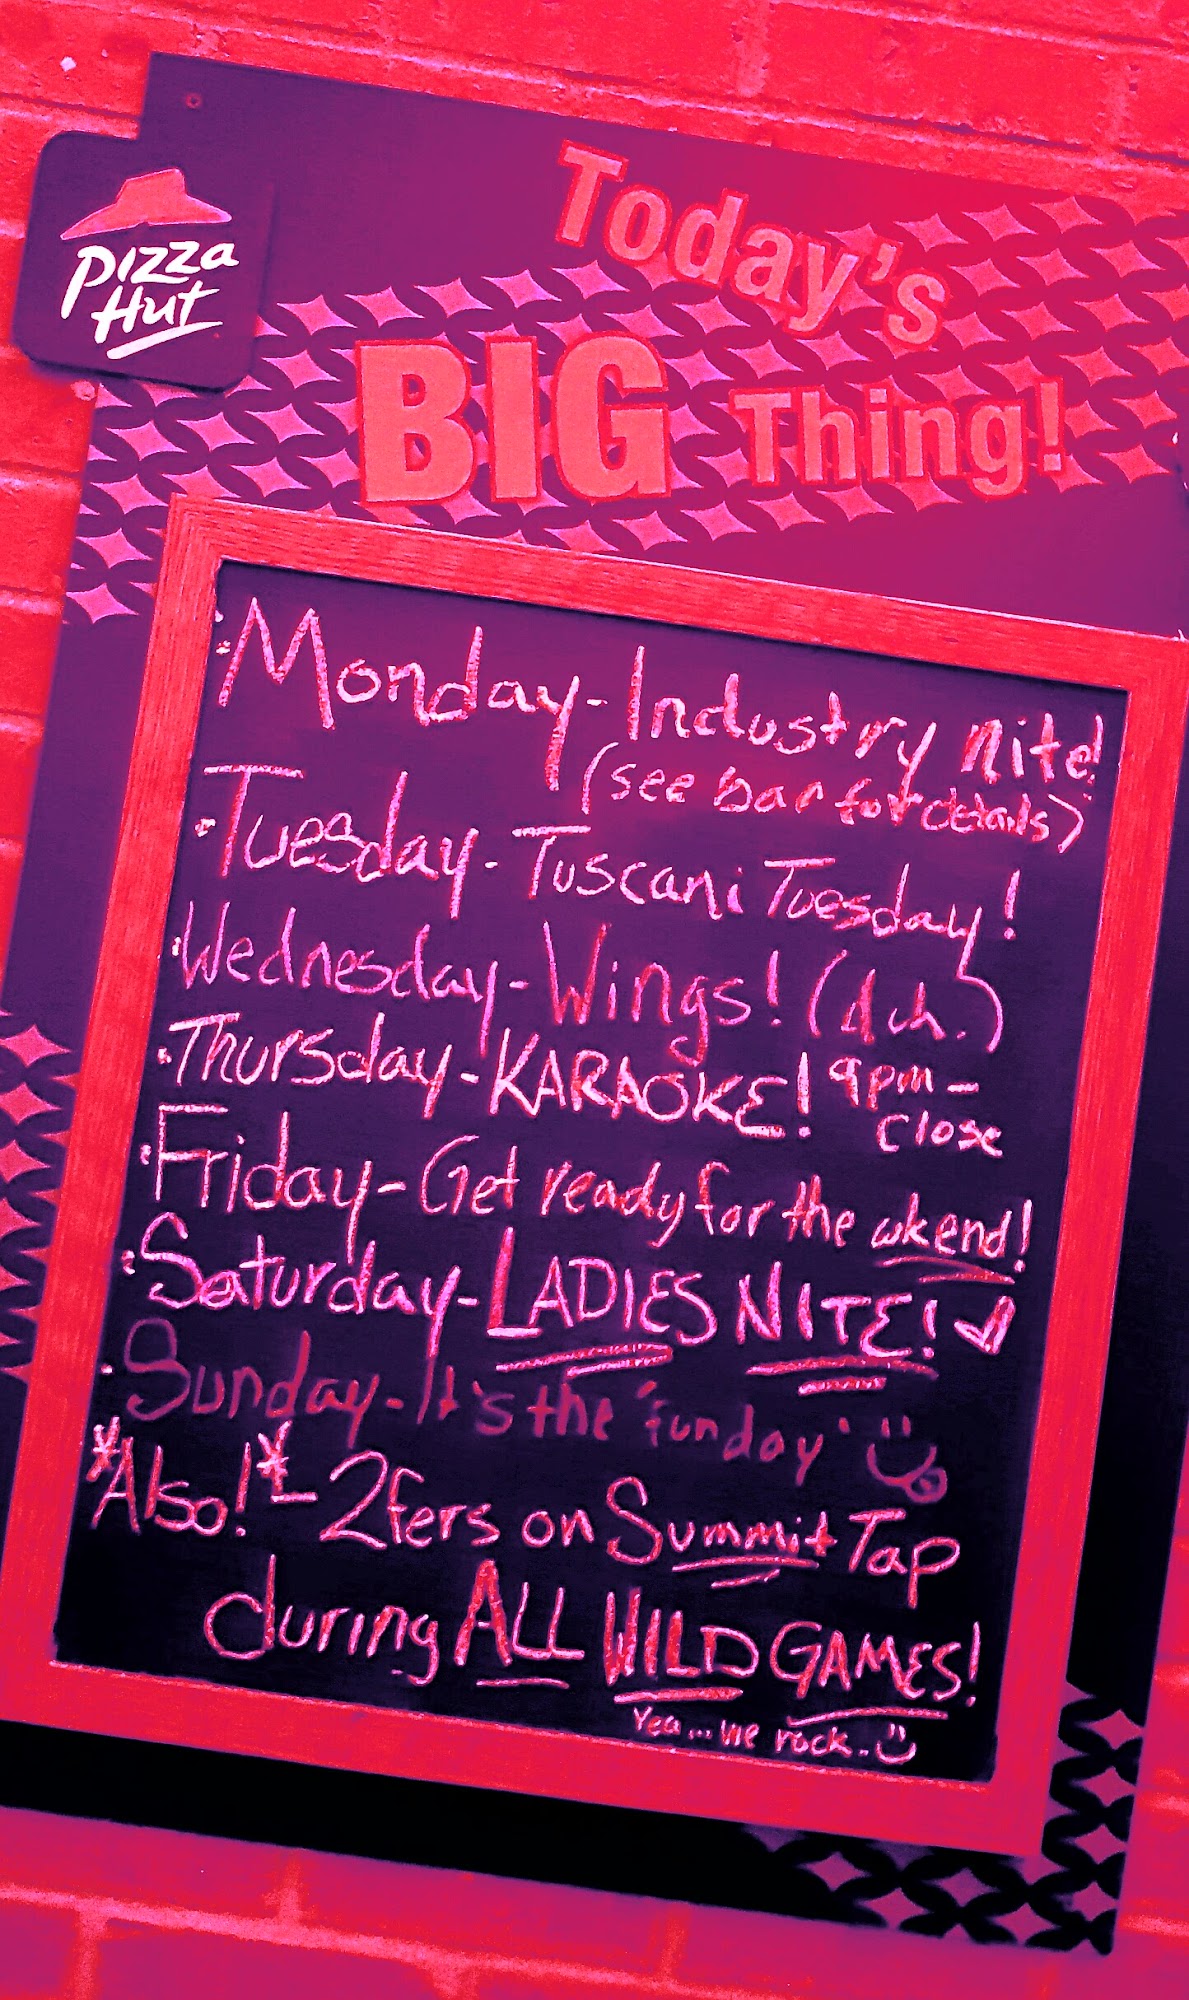 Pizza
Hut
Today's
BIG Thing!
·Monday-Industry Nite!
(see bar for details)
·Tuesday-Tuscani Tuesday!
·Wednesday-Wings! (duh.)
·Thursday-KARAOKE! 9pm-
close
·Friday-Get ready for the wkend!
·Saturday-LADIES NITE!
·Sunday-It's the 'funday'
*Also!*- 2fers on Summit Tap
during ALL WILD GAMES!
Yea...we rock.